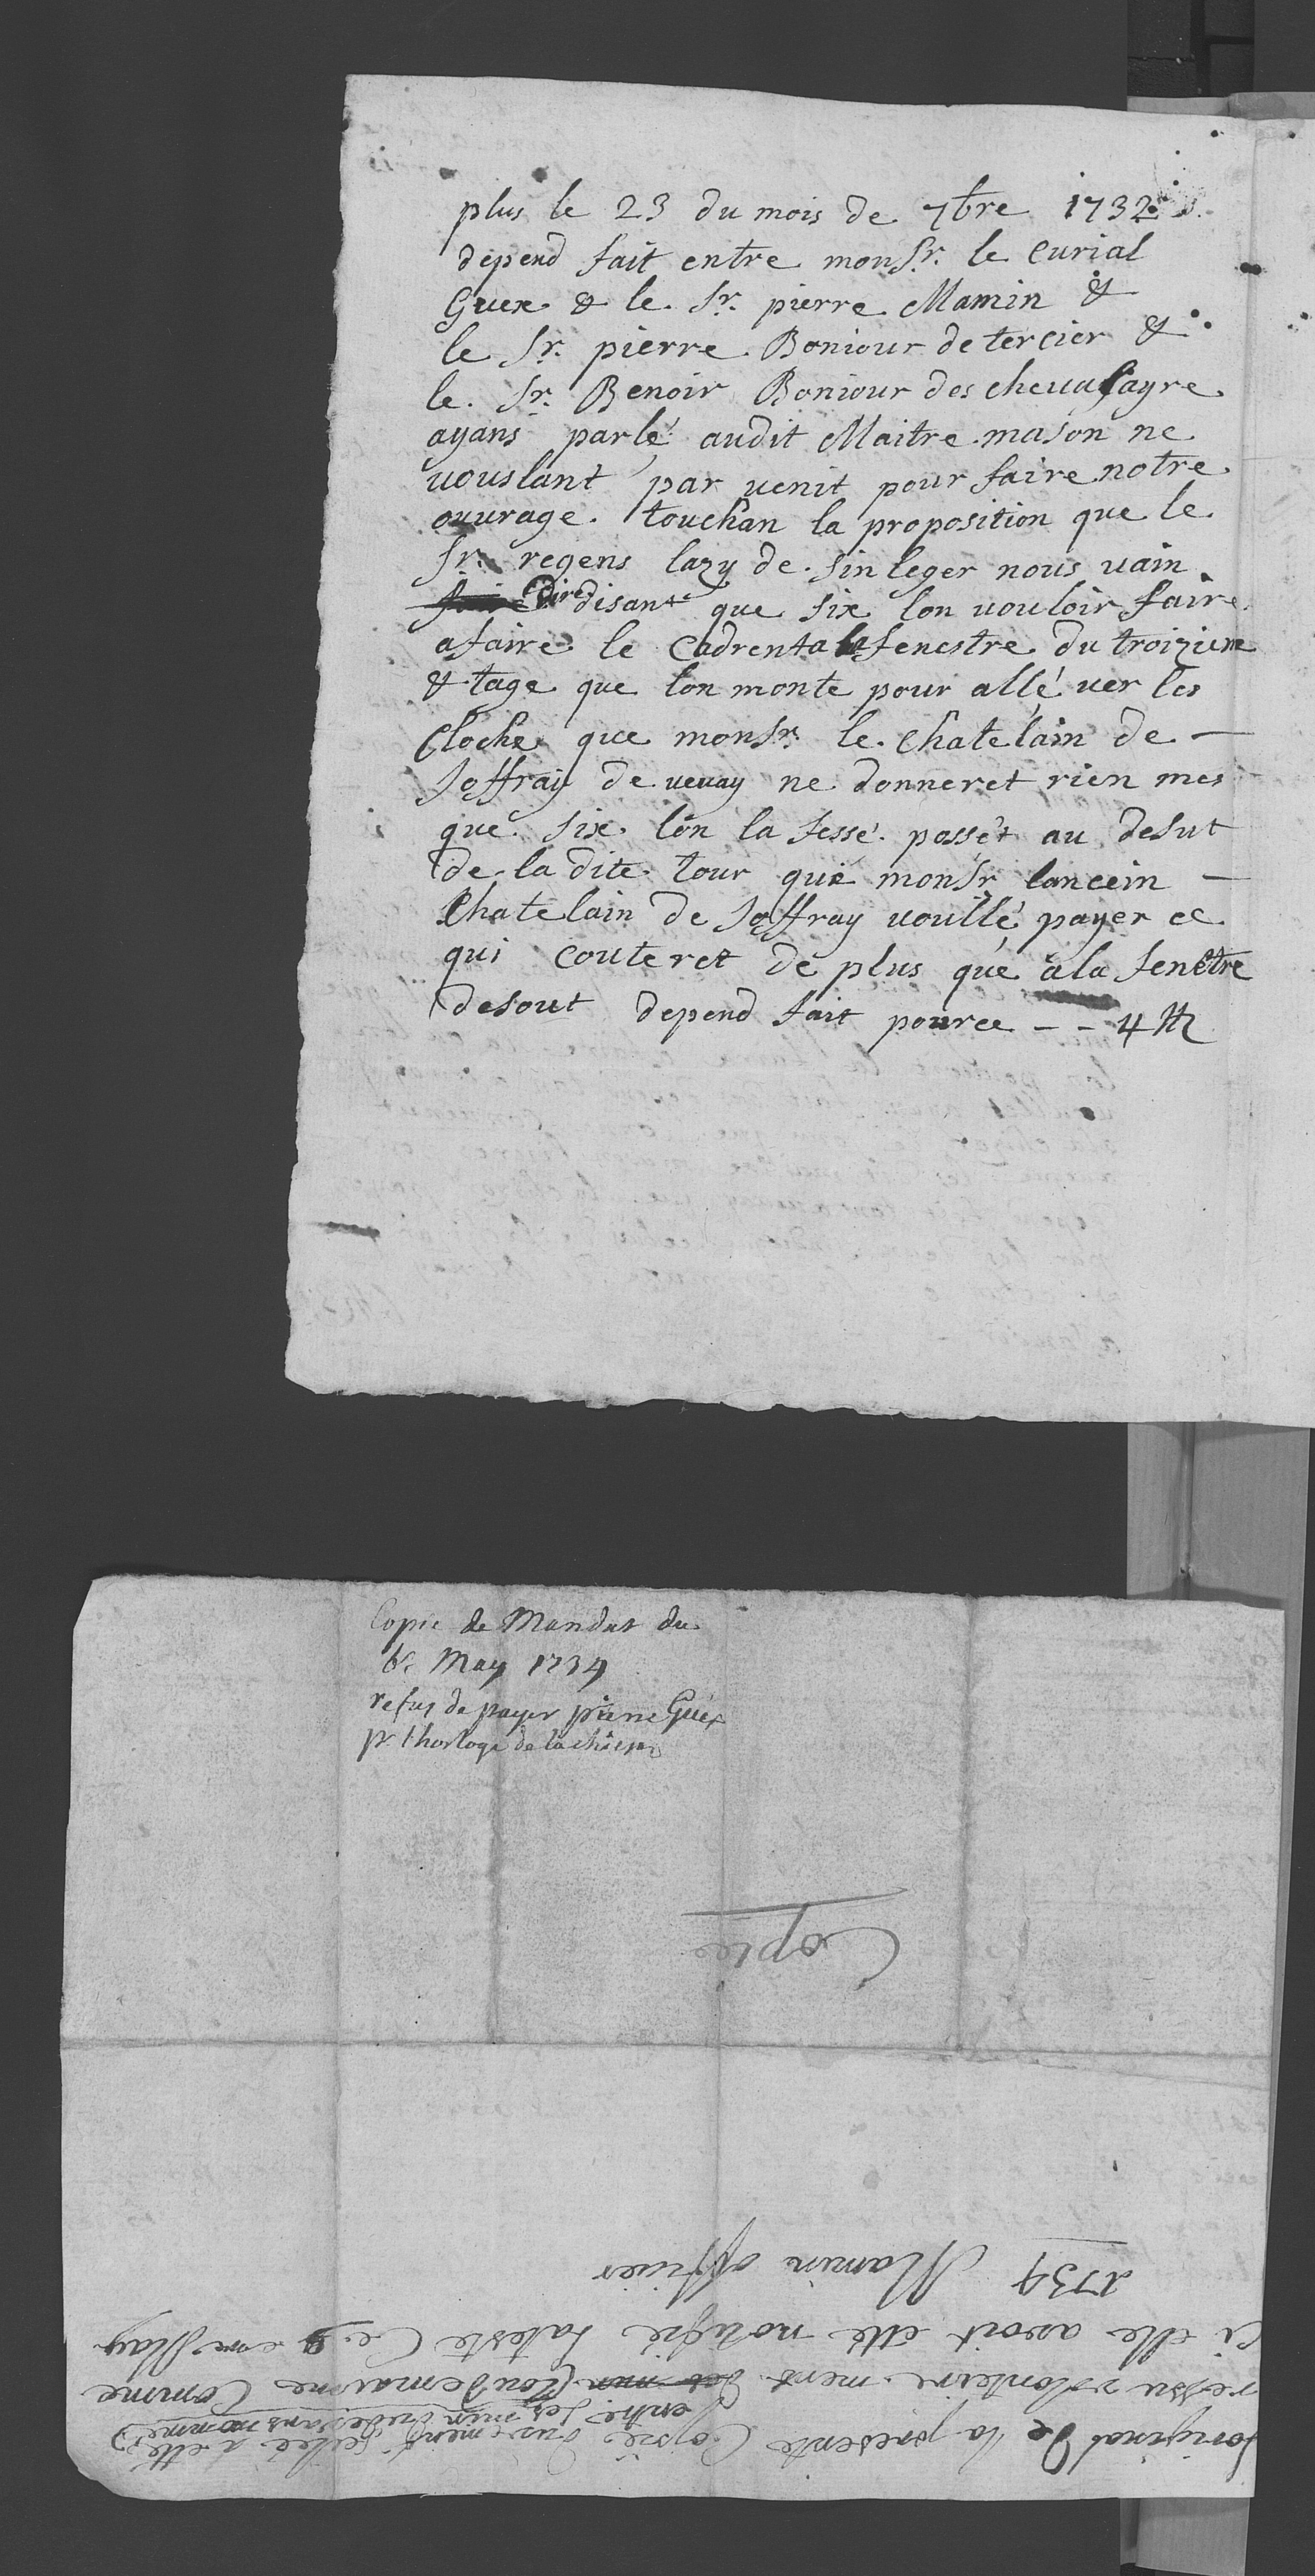 plus le 23 du mois de 7bre 1732
depend fait entre monsr. le curial
Guex & le Sr. pierre Mamin &
le Sr. pierre Bonjour de tercier &
le Sr. Benoir Bonjour des chevalayre
ayans parlé audit Maitre mason ne
vouslant par venit pour faire notre
ouvrage. touchan la proposition que le
Sr. regens lazy de sinleger nous vain
dire disant que six lon vouloir faire
afaire le Cadrent a la fenestre du troizieme
& tage que lon monte pour allé ver les
Cloche que monsr. le Chatelain de
Joffray de vevay ne donneret rien mes
que six lon la fessé passét au desut
de la dite tour que monsr lancein
Chatelain de Joffray voullé payer ce
qui couteret de plus que a la fenetre
desout depend fait pource - - 4 ℔
Copie de Mandat du
6e May 1734
refus de payer pierre Guex
pr. lhorloge de la chiesaz
Copie
loriginal de la presente Copie duement sellée a etté
entre les main credessans nommé
ressu volonteirement Comme
ci elle avoit etté notifié Lateste Ce em May
1734 Mamin officier